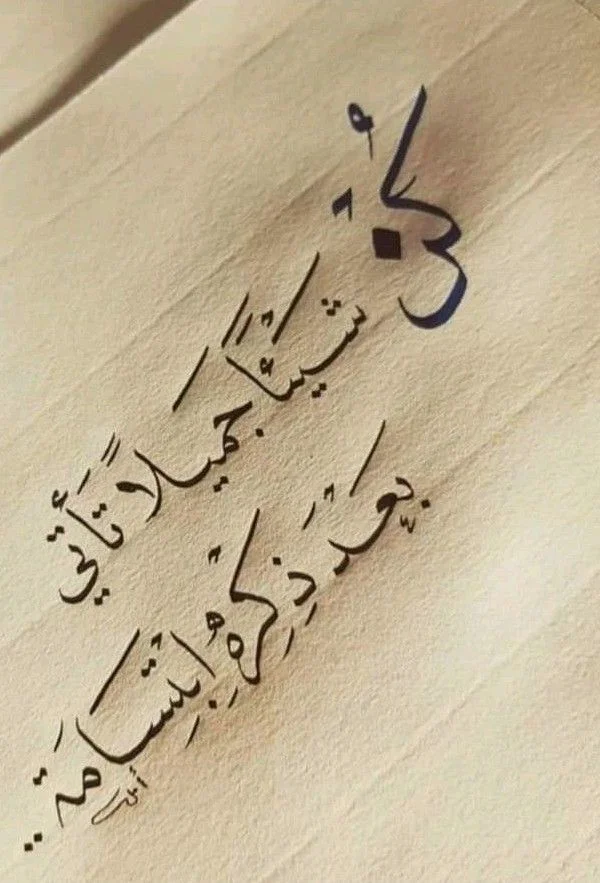 كُنْ
شَيْئًا جَمِيلاً تَأْتِي
بَعْدَ ذِكْرِهِ ابْتِسَامَة ..